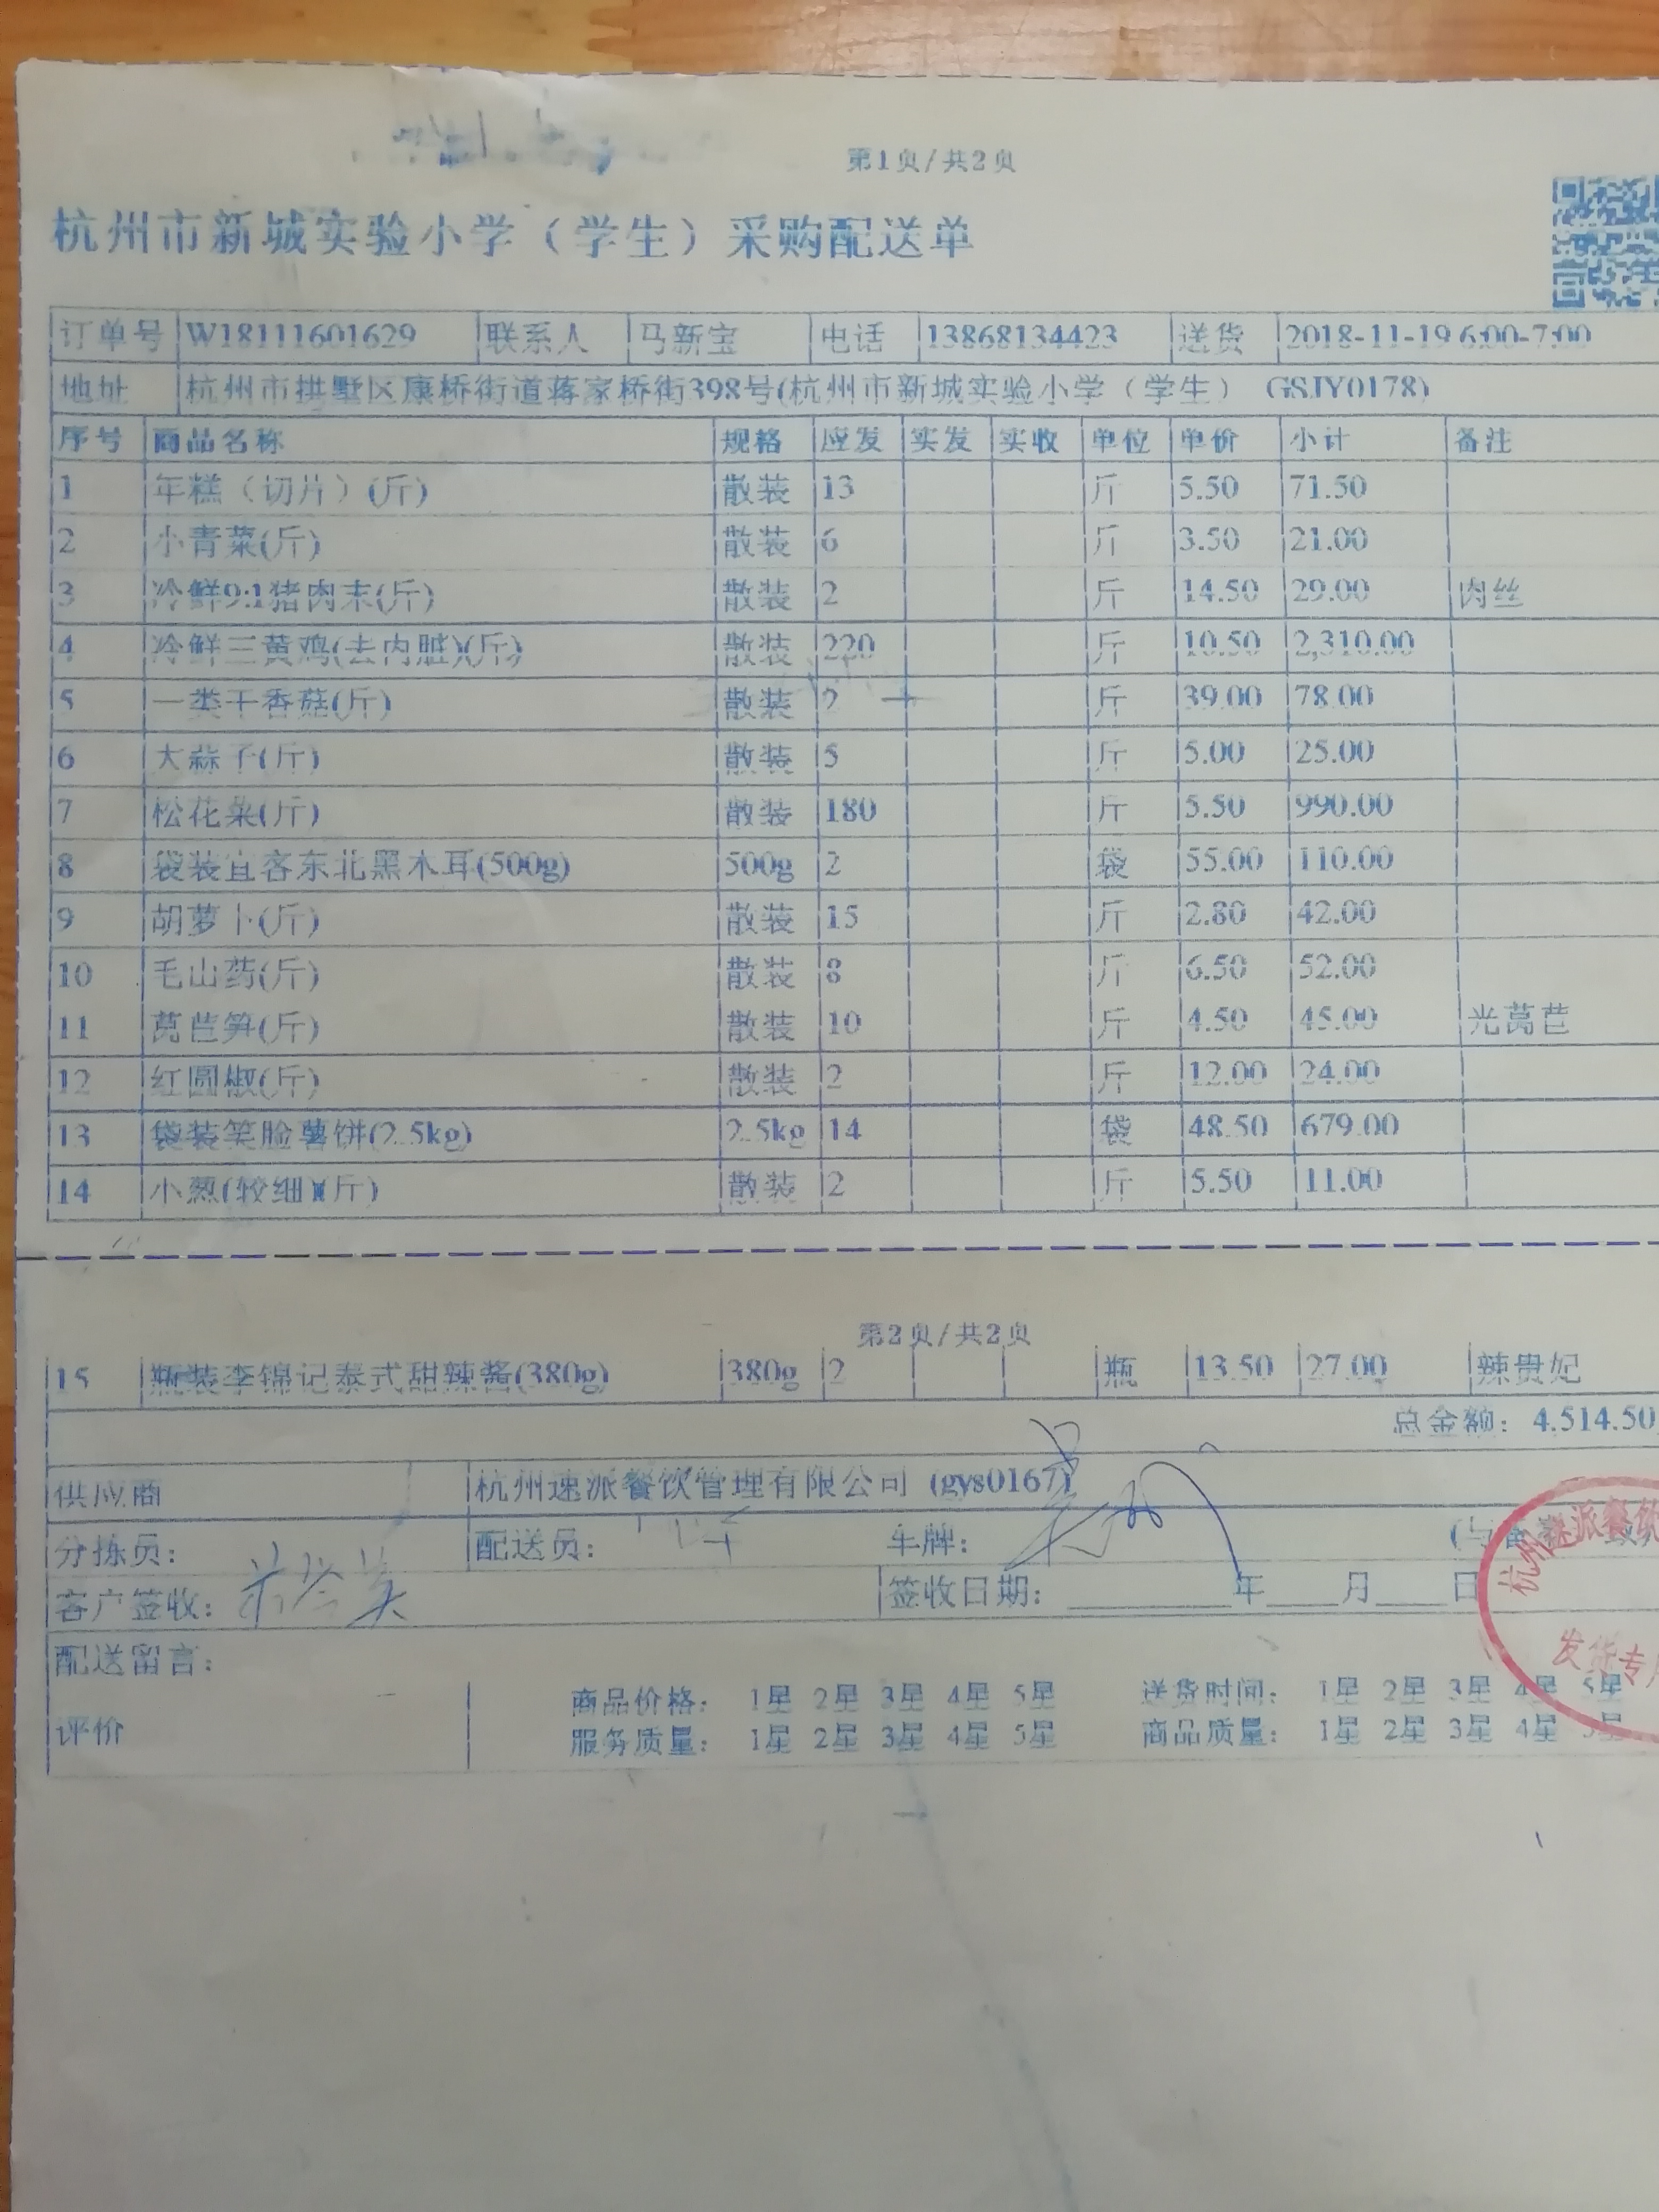 第1页/共2页
杭州市新城实验小学（学生）采购配送单
订单号 W18111601629 联系人 马新宝 电话 13868134423 送货 2018-11-19 6:00-7:00
地址 杭州市拱墅区康桥街道蒋家桥街398号(杭州市新城实验小学（学生） GSJY0178)
序号 商品名称 规格 应发 实发 实收 单位 单价 小计 备注
1 年糕（切片）(斤) 散装 13 斤 5.50 71.50
2 小青菜(斤) 散装 6 斤 3.50 21.00
3 冷鲜9:1猪肉末(斤) 散装 2 斤 14.50 29.00 肉丝
4 冷鲜三黄鸡(去内脏)(斤) 散装 220 斤 10.50 2,310.00
5 一类干香菇(斤) 散装 2 斤 39.00 78.00
6 大蒜子(斤) 散装 5 斤 5.00 25.00
7 松花菜(斤) 散装 180 斤 5.50 990.00
8 袋装宜客东北黑木耳(500g) 500g 2 袋 55.00 110.00
9 胡萝卜(斤) 散装 15 斤 2.80 42.00
10 毛山药(斤) 散装 8 斤 6.50 52.00
11 莴苣笋(斤) 散装 10 斤 4.50 45.00 光莴苣
12 红圆椒(斤) 散装 2 斤 12.00 24.00
13 袋装笑脸薯饼(2.5kg) 2.5kg 14 袋 48.50 679.00
14 小葱(较细)(斤) 散装 2 斤 5.50 11.00
第2页/共2页
15 瓶装李锦记泰式甜辣酱(380g) 380g 2 瓶 13.50 27.00 辣贵妃
总金额: 4,514.50
供应商 杭州速派餐饮管理有限公司 (gys0167)
分拣员: 配送员: 车牌:
客户签收: 签收日期: 年 月 日
配送留言:
评价
商品价格: 1星 2星 3星 4星 5星 送货时间: 1星 2星 3星 4星 5星
服务质量: 1星 2星 3星 4星 5星 商品质量: 1星 2星 3星 4星 5星
杭州速派餐饮
发货专用